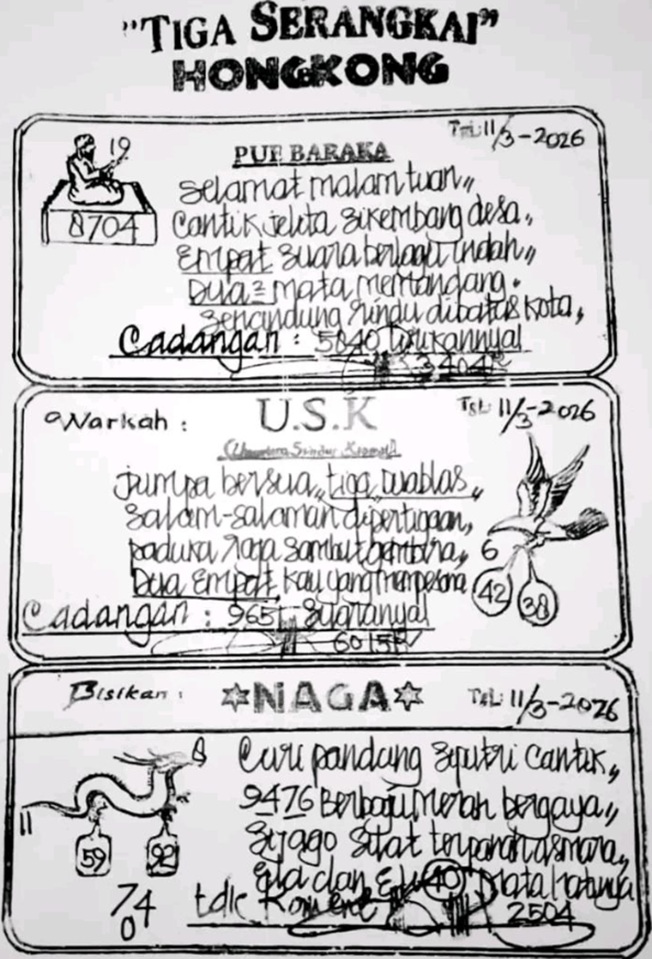 "TIGA SERANGKAI"
HONGKONG
Tgl: 11/3-2026
19
8704
PUE BARAKA
Selamat malam tuan,,
Cantik jelita sikembang desa,,
Empat suara berlagu indah,,
Dua² mata memandang.
Senandung rindu dibatas kota,,
Cadangan : 5840
Warkah :
U.S.K
Tgl: 11/3-2026
Jumpa bersua,, tiga duablas,,
Salam-salaman dipertigaan,,
paduka raga sambut gembira,,
Dua Empat kau yang mempesona
6
42
38
Cadangan : 9651 Suaranya!
6015
Bisikan :
NAGA
Tgl: 11/3-2026
Curi pandang siputri cantik,,
9476 Berbaju merah bergaya,,
Sijago silat terpanah asmara,,
40 mata hatinya
8
11
59
92
74
0
2504